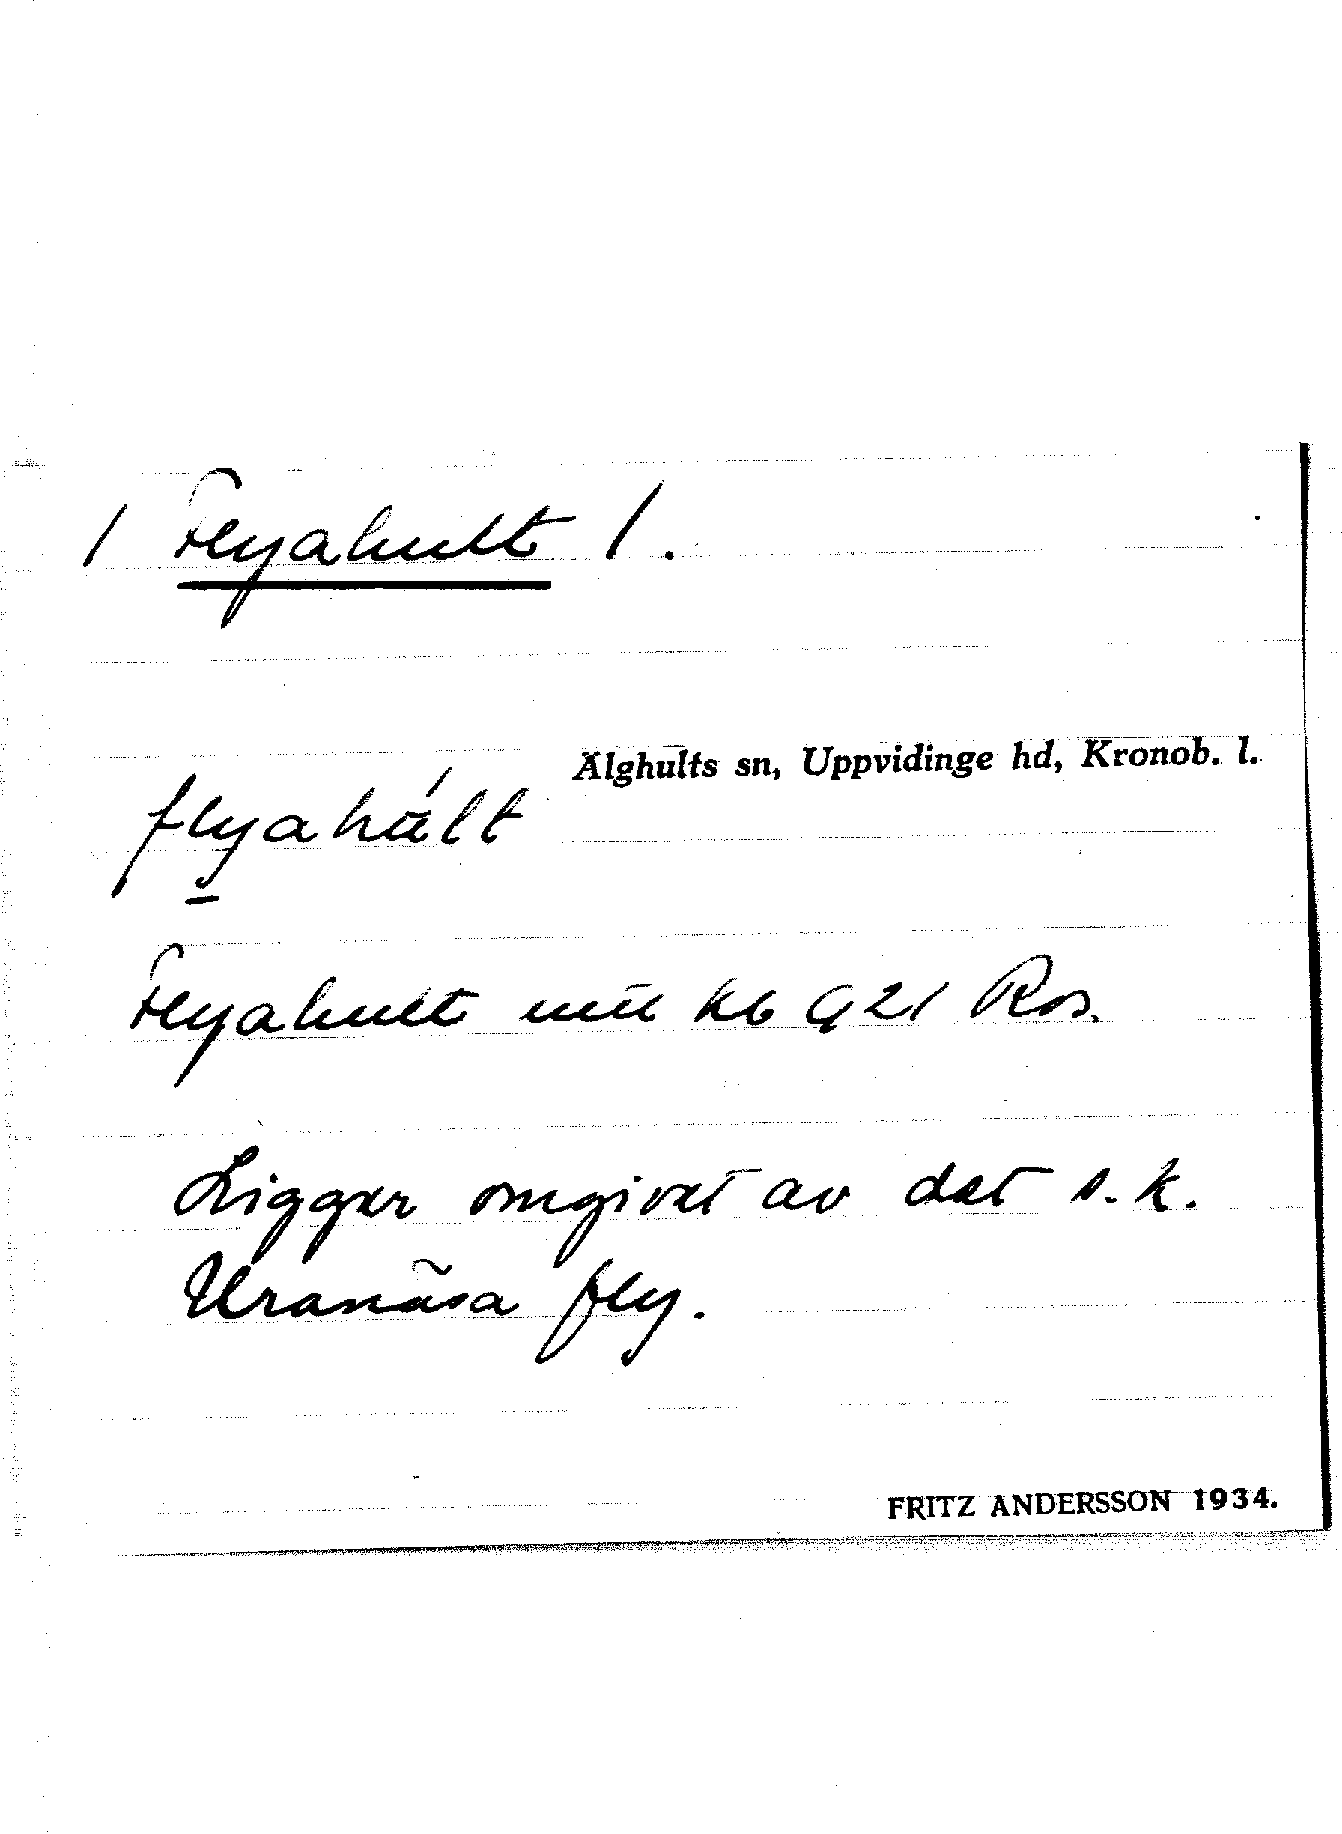 / Flyahult /.
Älghults sn, Uppvidinge hd, Kronob. l.
flyahúlt
Flyahult kb G21 Ros.
Ligger omgivet av det s.k.
Uranäsa fly.
FRITZ ANDERSSON 1934.